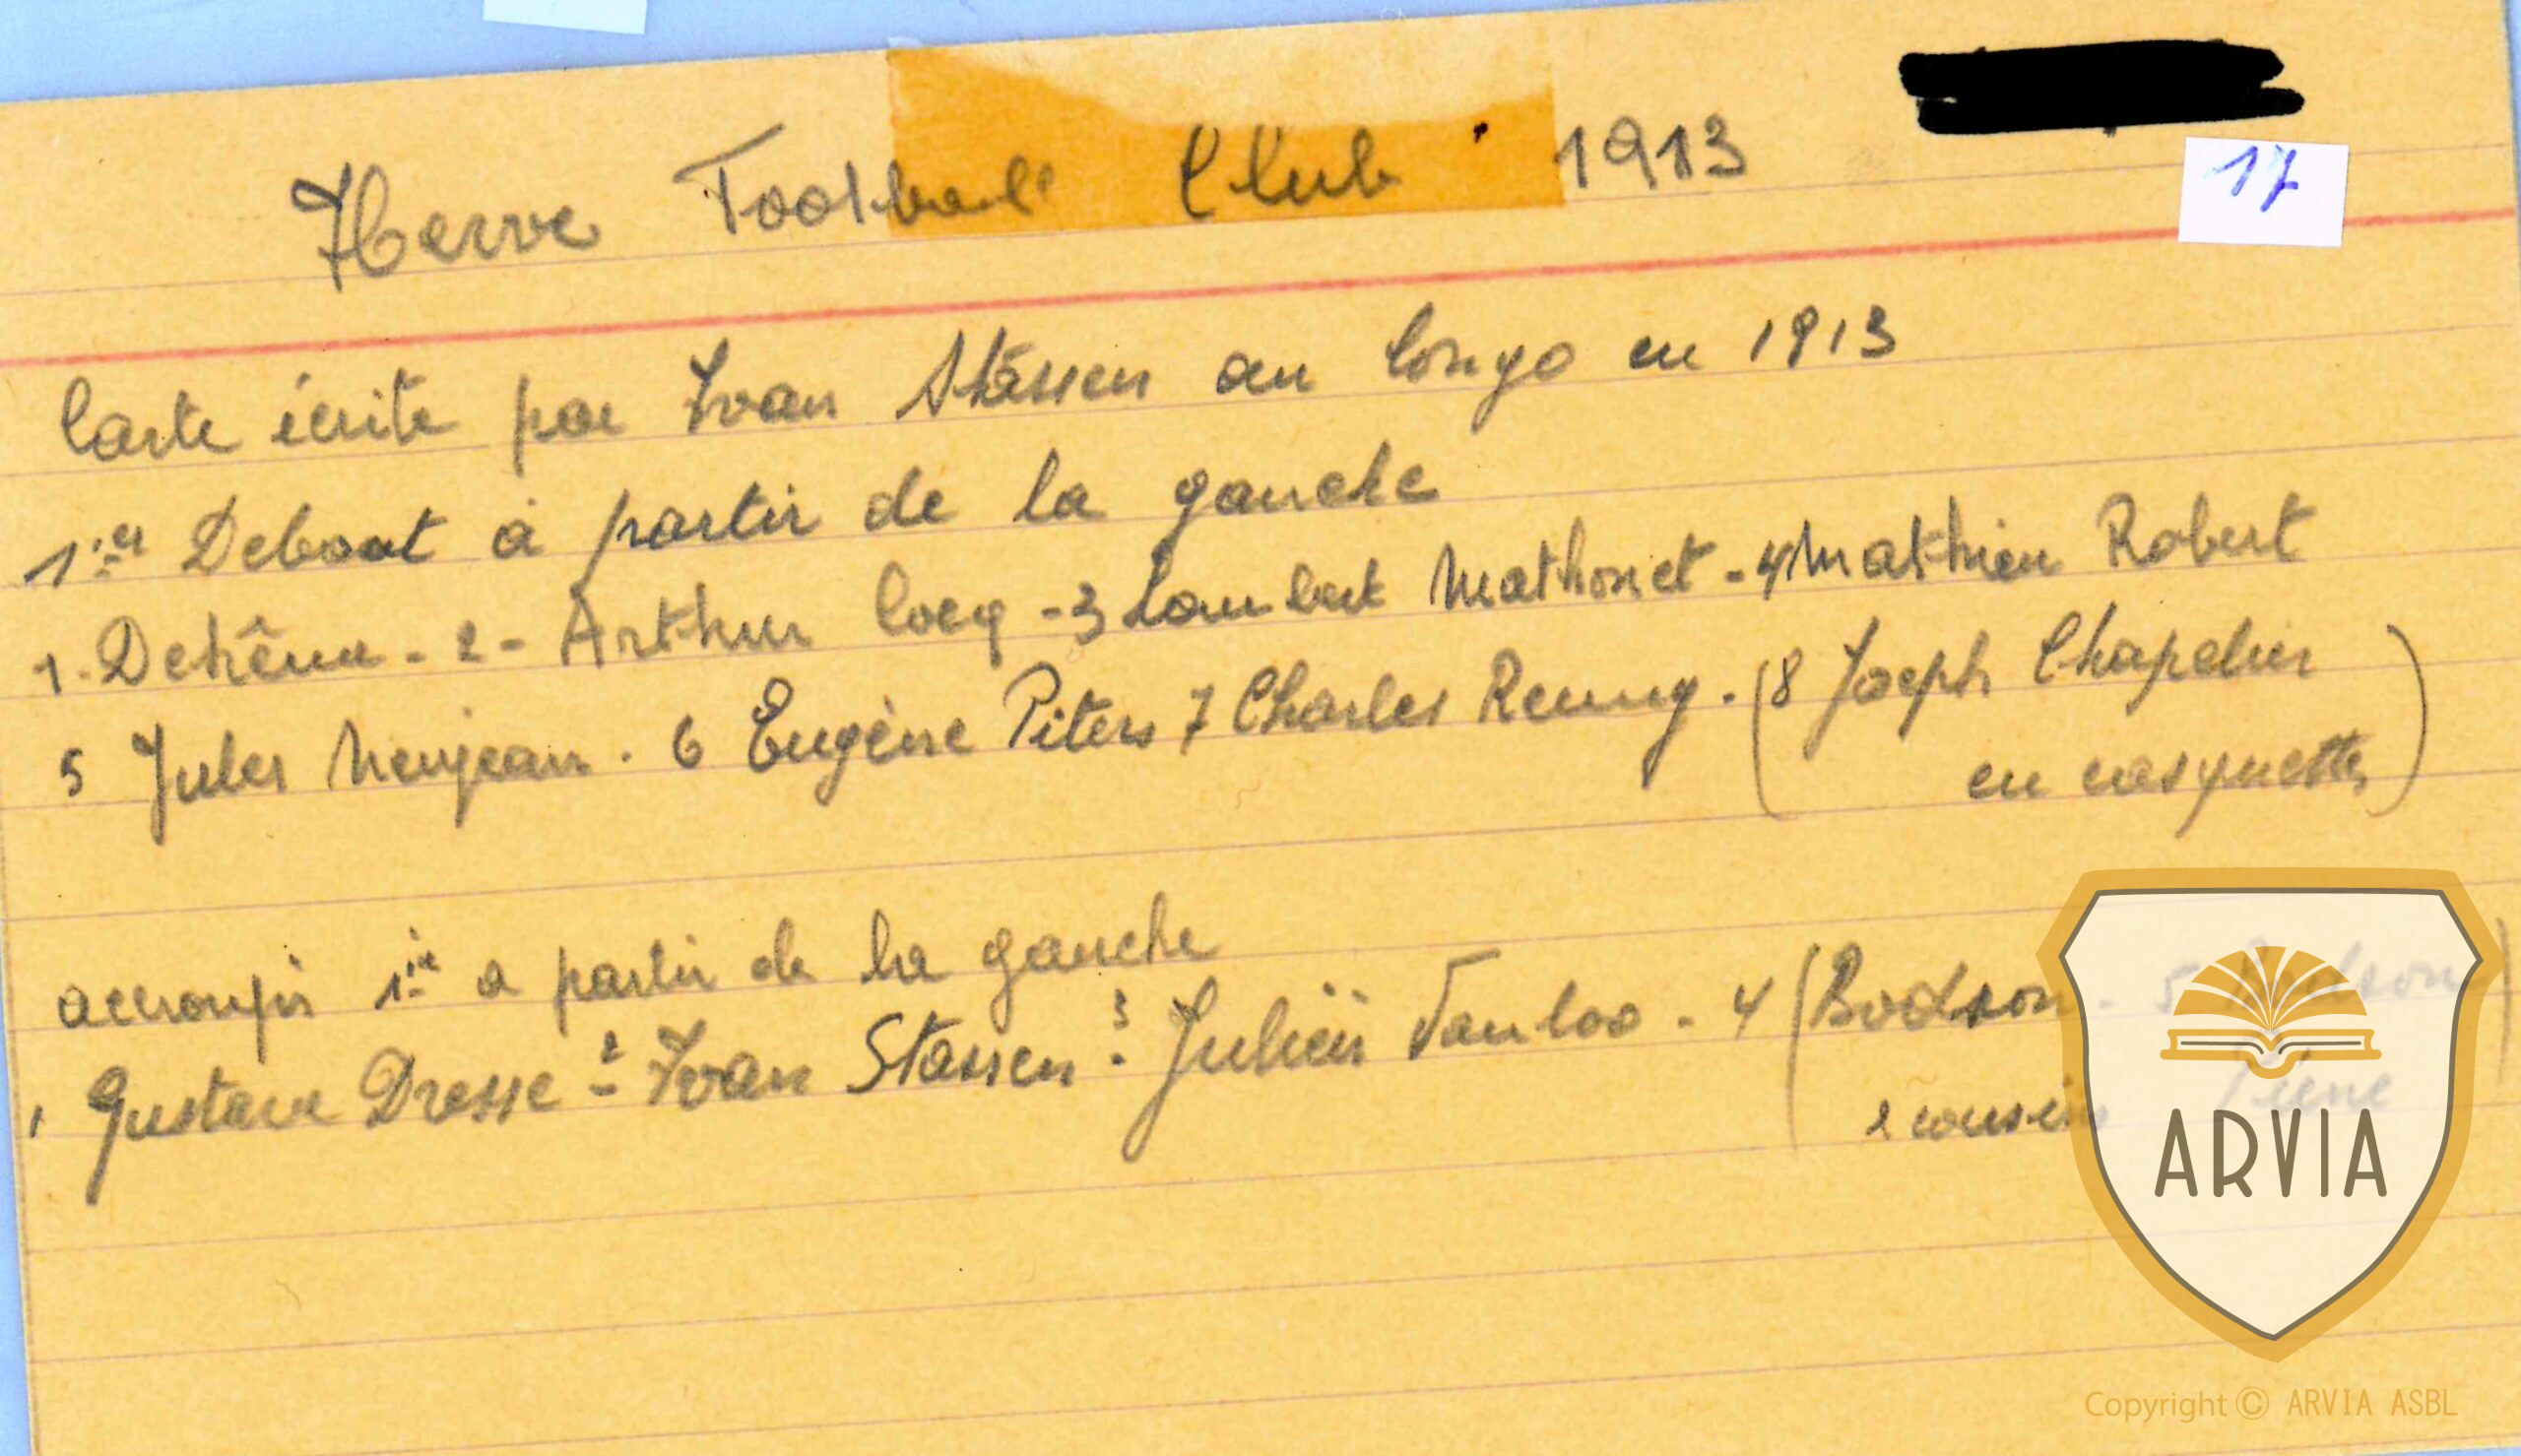 Herve Football Club 1913
17
Carte écrite par Ivan Stassen au Congo en 1913
1er Debout à partir de la gauche
1. Detrême - 2 - Arthur Cocq - 3 Lambert Mathonet - 4 Mathieu Robert
5 Jules Neujean . 6 Eugène Piters 7 Charles Remy . (8 Joseph Chapelier
en casquette)
accroupis 1er a partir de la gauche
1 Gustave Dresse - 2 Ivan Stassen - 3 Julien Vanloo - 4 (Bodson - 5 Bodson)
2 cousins
ARVIA
Copyright © ARVIA ASBL